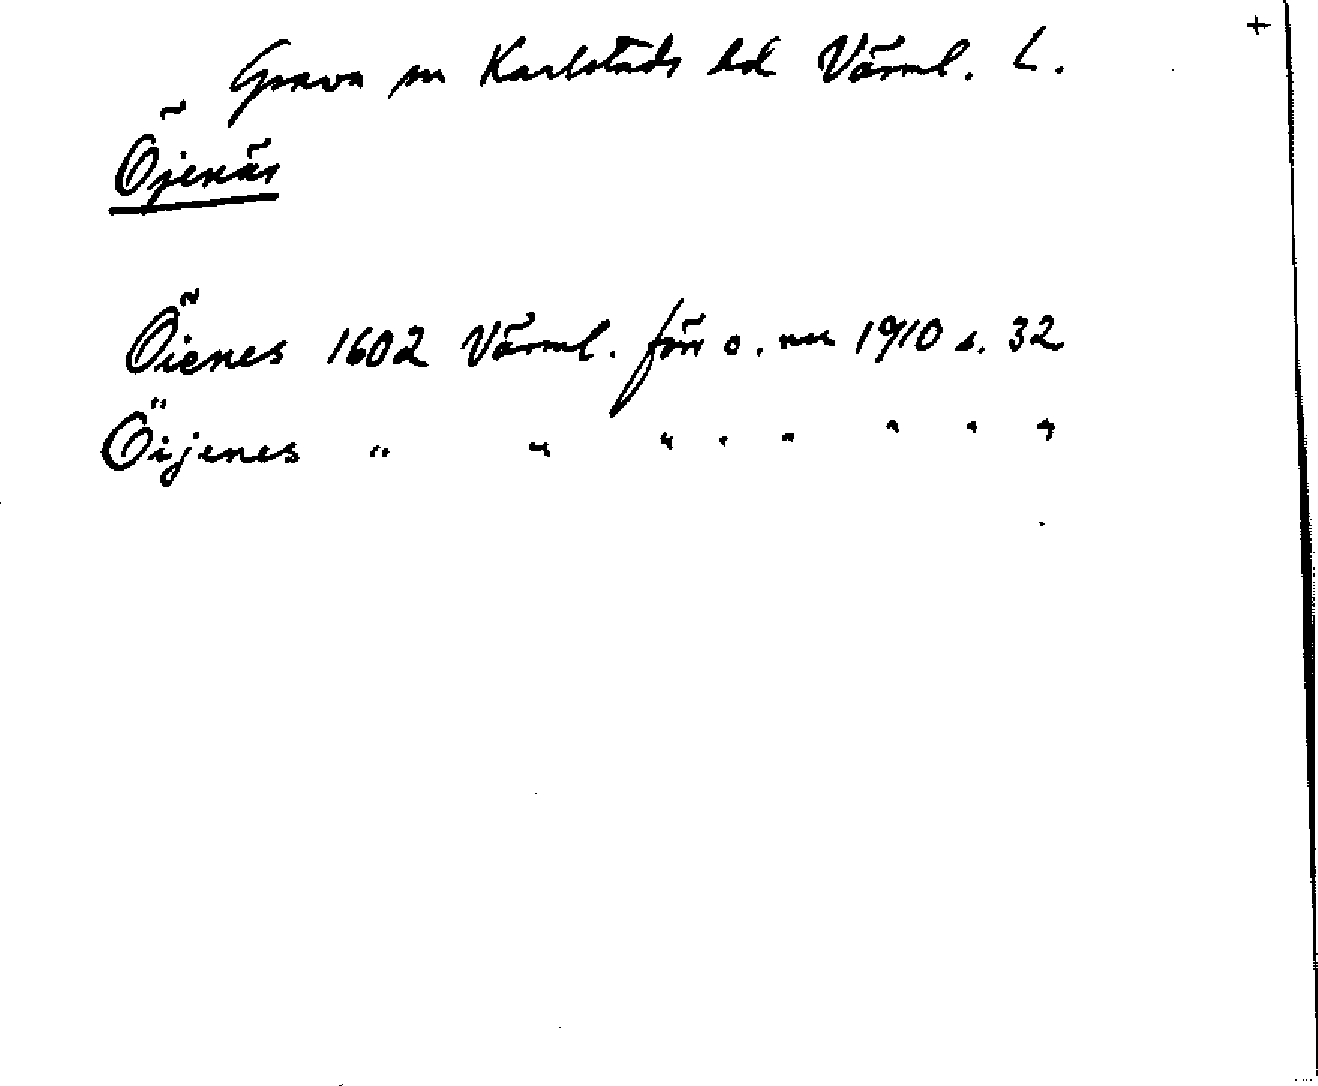 +
Grava sn Karlstads hd Värml. L.
Öjenäs
Öienes 1602 Värml. förr o. nu 1910 s. 32
Öijenes " " " " " " " "